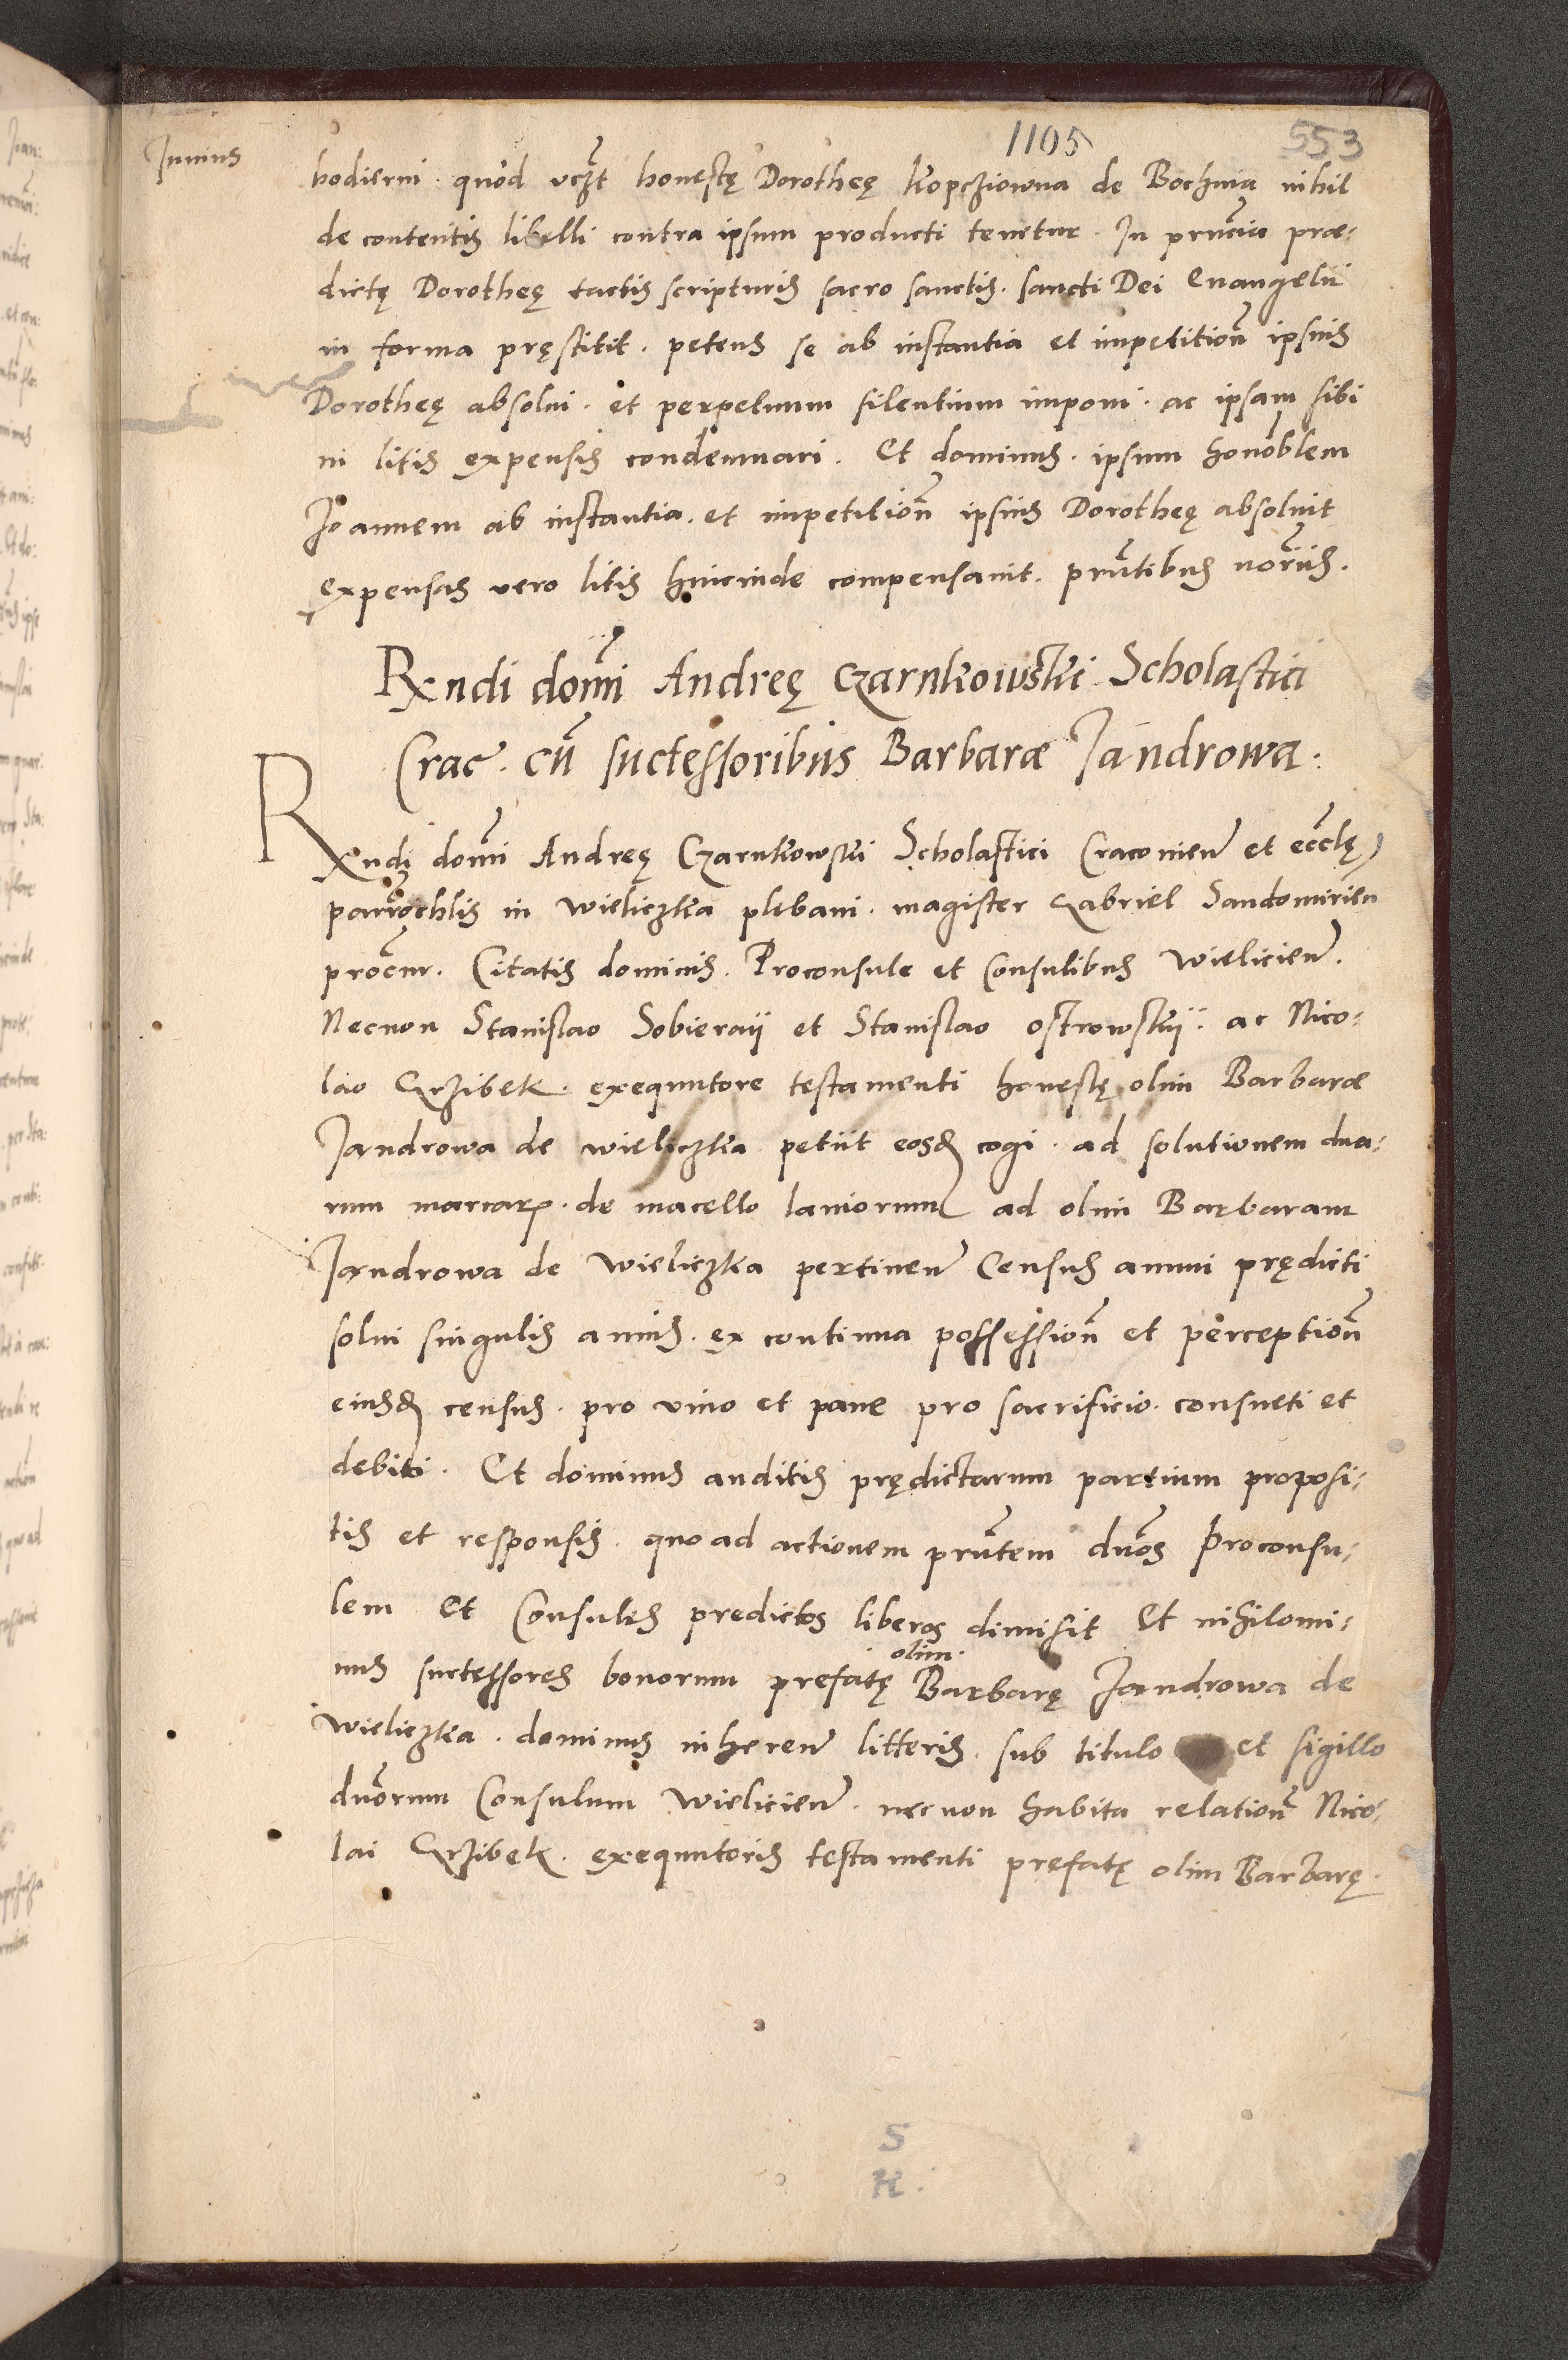 1105 553
Junius
hodierni. quod vczt honestę Dorotheę Kopcziowna de Bochnia nihil
de contentis libelli contra ipsum producti tenetur. In prncia præ-
dictę Dorotheę tactis scripturis sacro sanctis. sancti Dei Euangelii
in forma pręstitit. petens se ab instantia et impetition ipsius
Dorotheę absolui. et perpetuum silentium imponi. ac ipsam sibi
in litis expensis condemnari. Et dominus. ipsum honoblem
Joannem ab instantia. et impetition ipsius Dorotheę absoluit
expensas vero litis hincinde compensauit. prntibus noriis.
Rxndi domi Andreę Czarnkowski Scholastici
Crac. cū successoribus Barbaræ Jandrowa.
Rxndi domi Andreę Czarnkowski Scholastici Cracouien et ecclę
parrochlis in Wieliczka plebani. magister Gabriel Sandomirien
procur. Citatis dominis. Proconsule et Consulibus Wielicien.
Necnon Stanislao Sobieraij et Stanislao Ostrowskij. ac Nico-
lao Grzibek. exequutore testamenti honestę olim Barbaræ
Jandrowa de Wieliczka petiit eosd cogi. ad solutionem dua-
rum marcarum. de macello laniorum ad olim Barbaram
Jandrowa de Wieliczka pertinen Census annui prędicti
solui singulis annis. ex continua possession et perception
eiusd census. pro vino et pane pro sacrificio. consueti et
debiti. Et dominus auditis prędictarum partium proposi-
tis et responsis. quo ad actionem prntem dnos Proconsu-
lem et Consules predictos liberos dimisit Et nihilomi-
nus successores bonorum prefatę olim. Barbarę Jandrowa de
Wieliczka. dominus inheren litteris. sub titulo et sigillo
dnorum Consulum Wielicien. necnon habita relation Nico-
lai Grzibek. exequutoris testamenti prefatę olim Barbarę.
S
K.